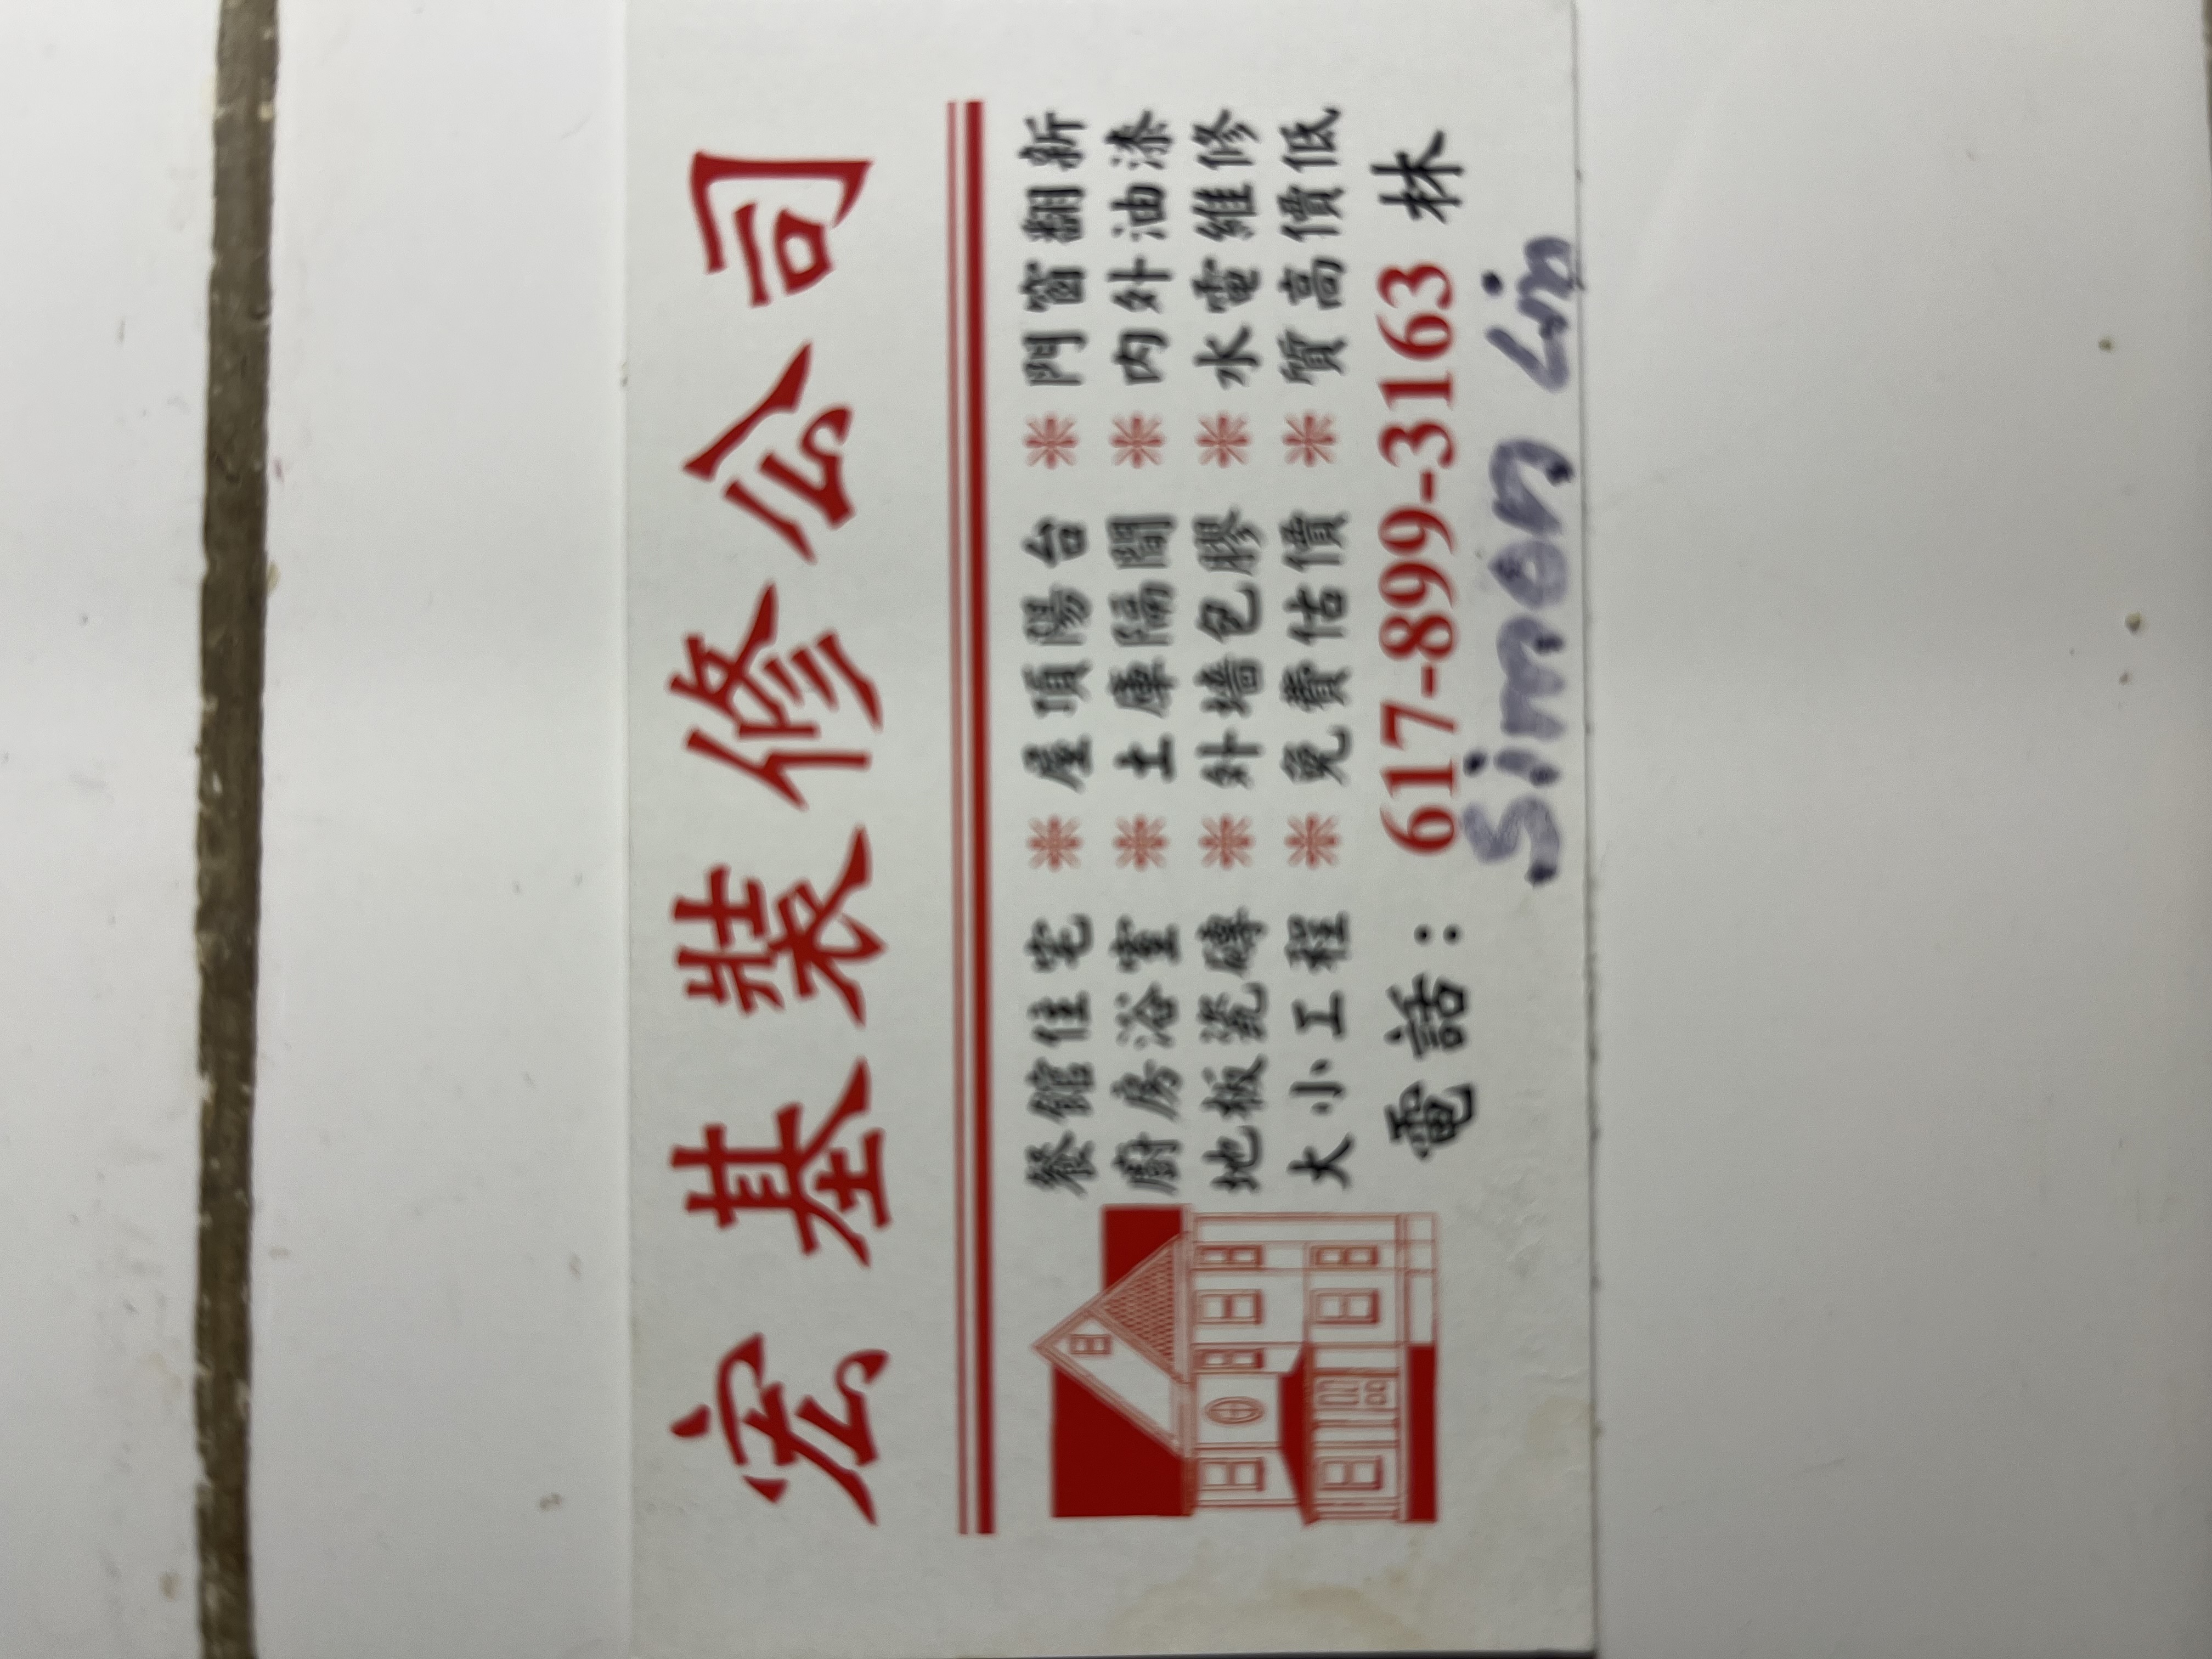 宏基裝修公司
餐館住宅 ※ 屋頂陽台 ※ 門窗翻新
廚房浴室 ※ 土庫隔間 ※ 內外油漆
地板瓷磚 ※ 外墻包膠 ※ 水電維修
大小工程 ※ 免費估價 ※ 質高價低
電話：617-899-3163 林
Simon Lin